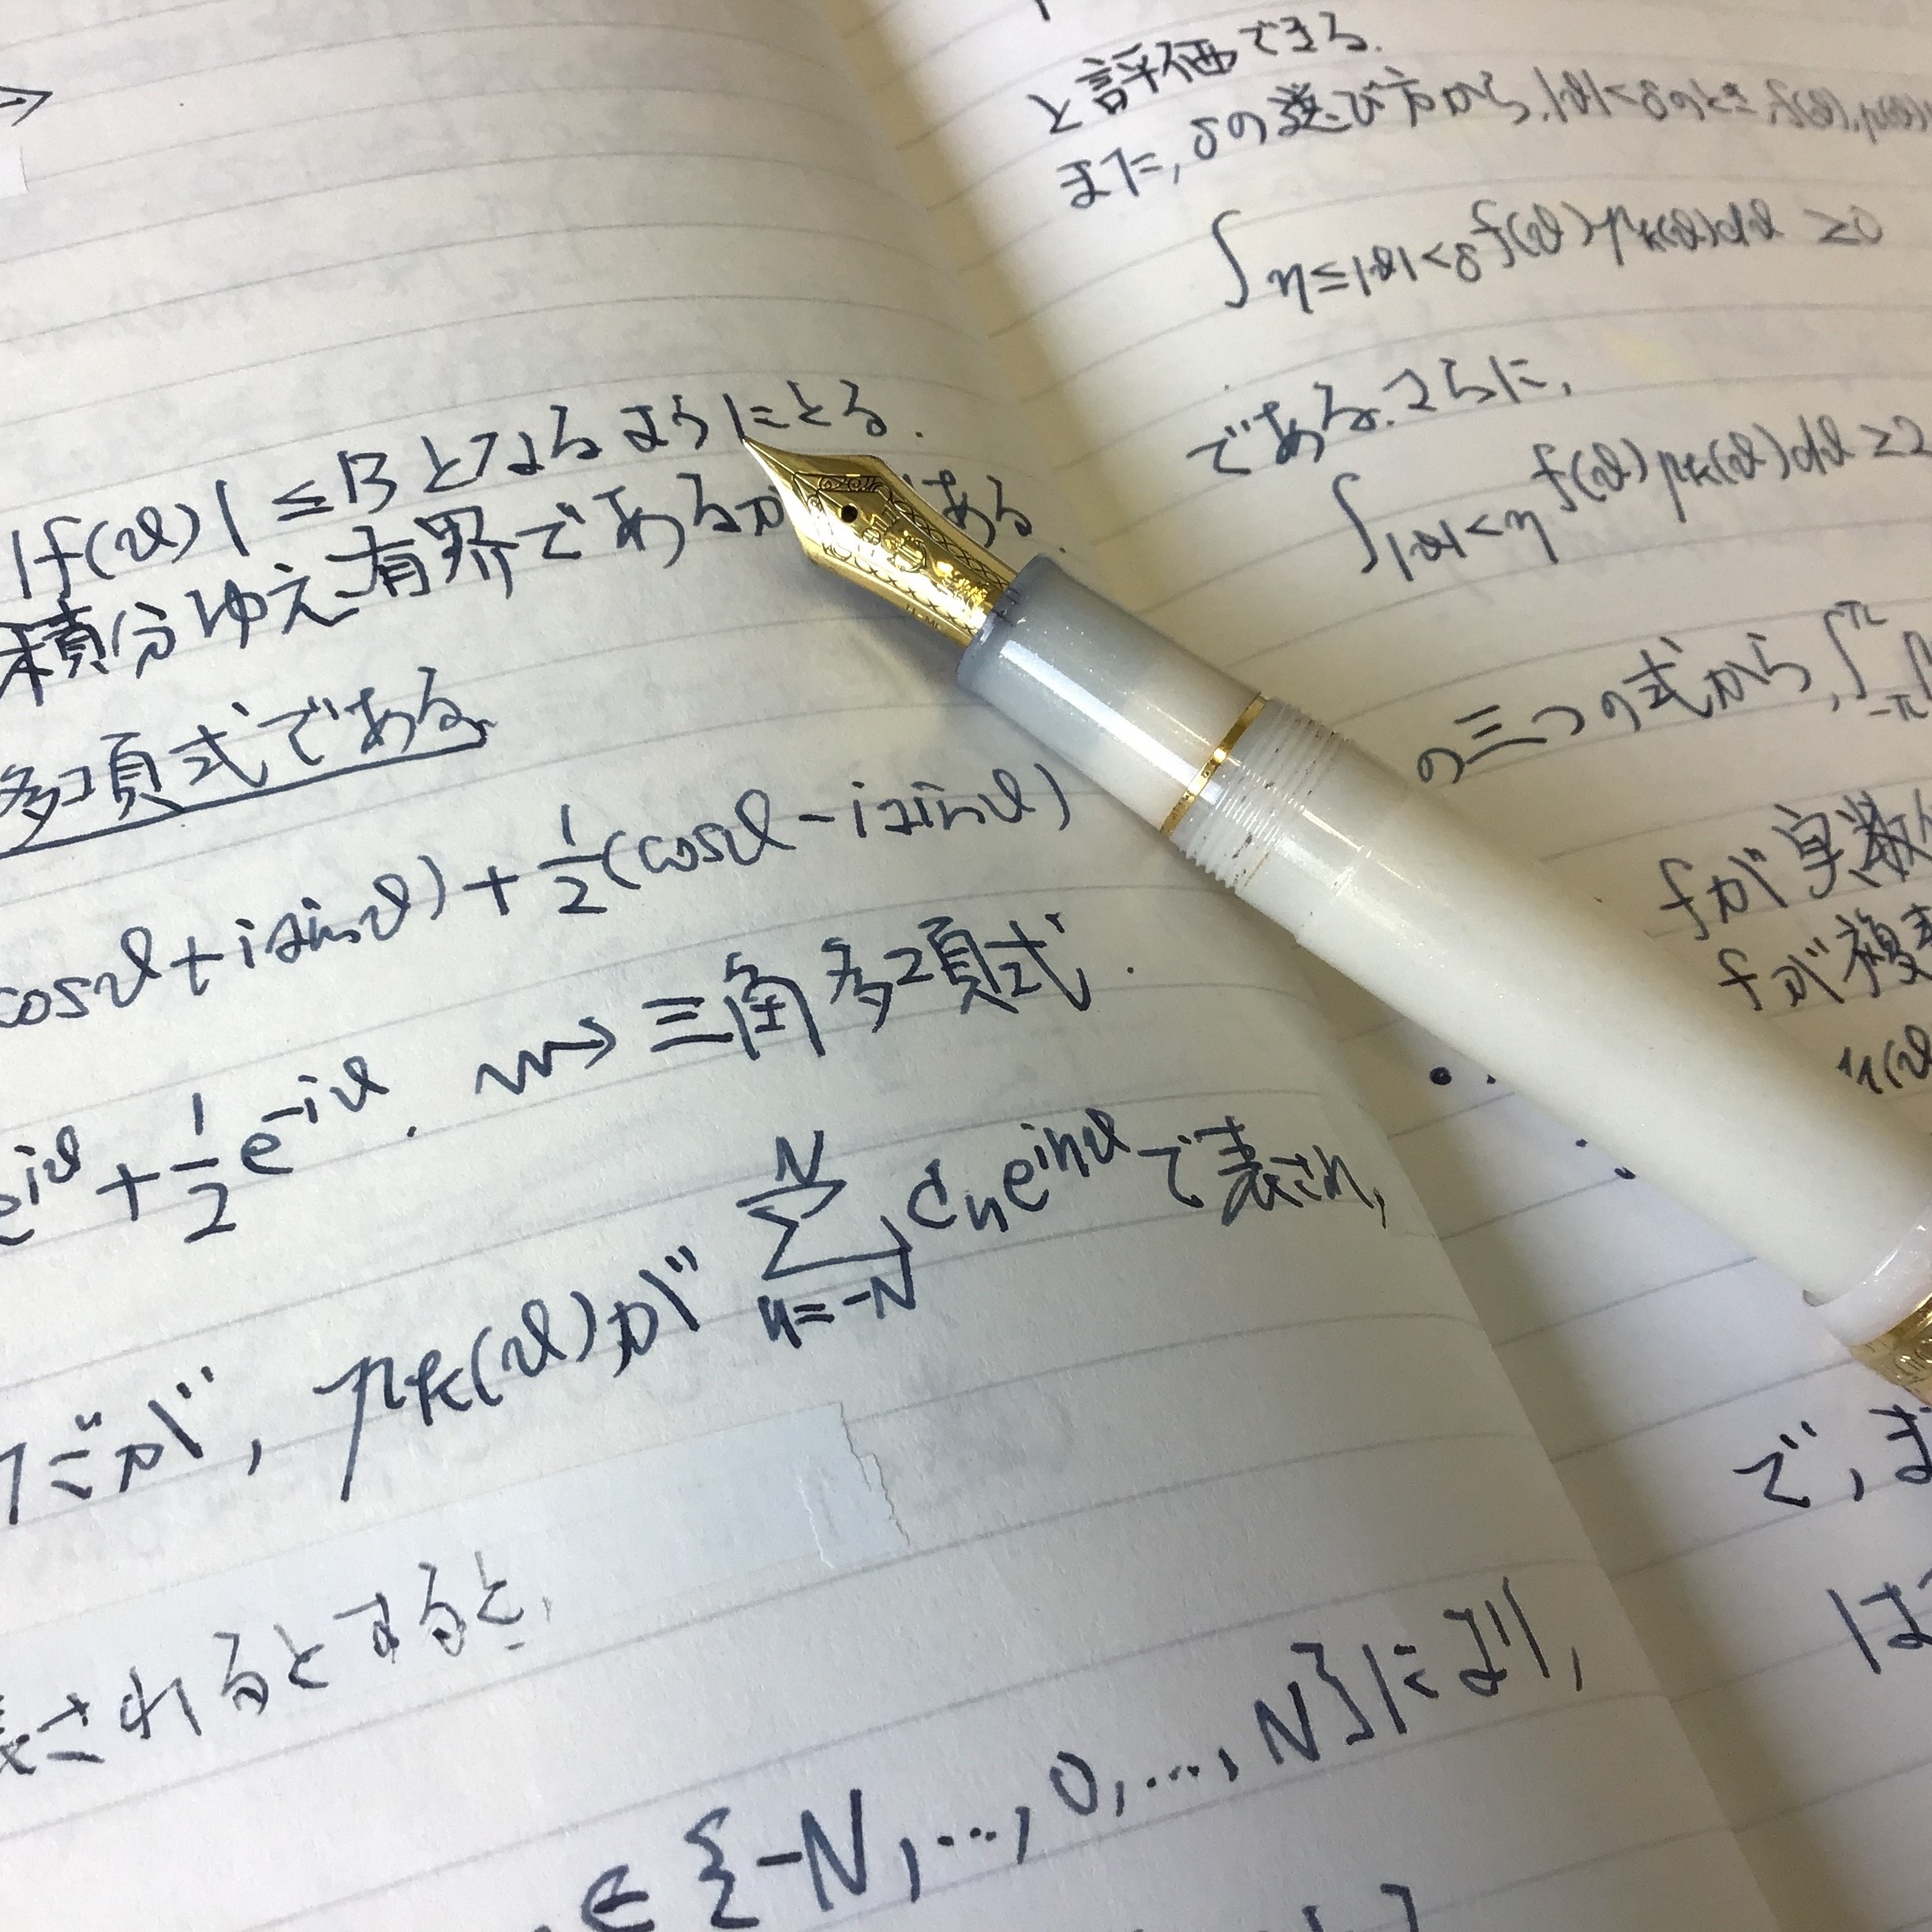 |f(θ)| ≤ B となるようにとる.
積分ゆえ有界である ある.
多項式である
cosθ + i sinθ) + 1/2 (cosθ - i sinθ)
e^{iθ} + 1/2 e^{-iθ}. ⇝ 三角多項式.
だが, p_k(θ)が Σ_{n=-N}^{N} c_n e^{inθ} で表され,
されるとすると,
∈ {-N, ..., 0, ..., N}により,
と評価できる.
また, δの選び方から, |θ|<δのとき, f(θ), p_k(θ)
∫_{η≤|θ|<δ} f(θ) p_k(θ) dθ ≥ 0
である. さらに,
∫_{|θ|<η} f(θ) p_k(θ) dθ ≥ 2
の三つの式から, ∫_{-π}^{π}
fが実数
fが複素
で, ま
は